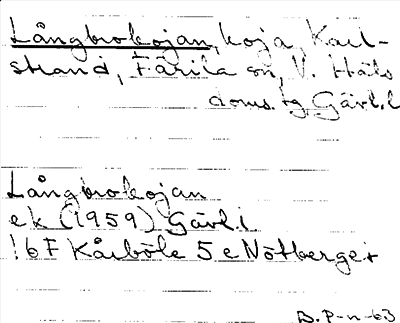 Långbrokojan, koja, Karl-
strand, Färila sn, V. Häls
doms. tg Gävl.l
Långbrokojan
ek (1959) Gävl.l
16 F Kårböle 5 e Nötberget
B. P-n-63